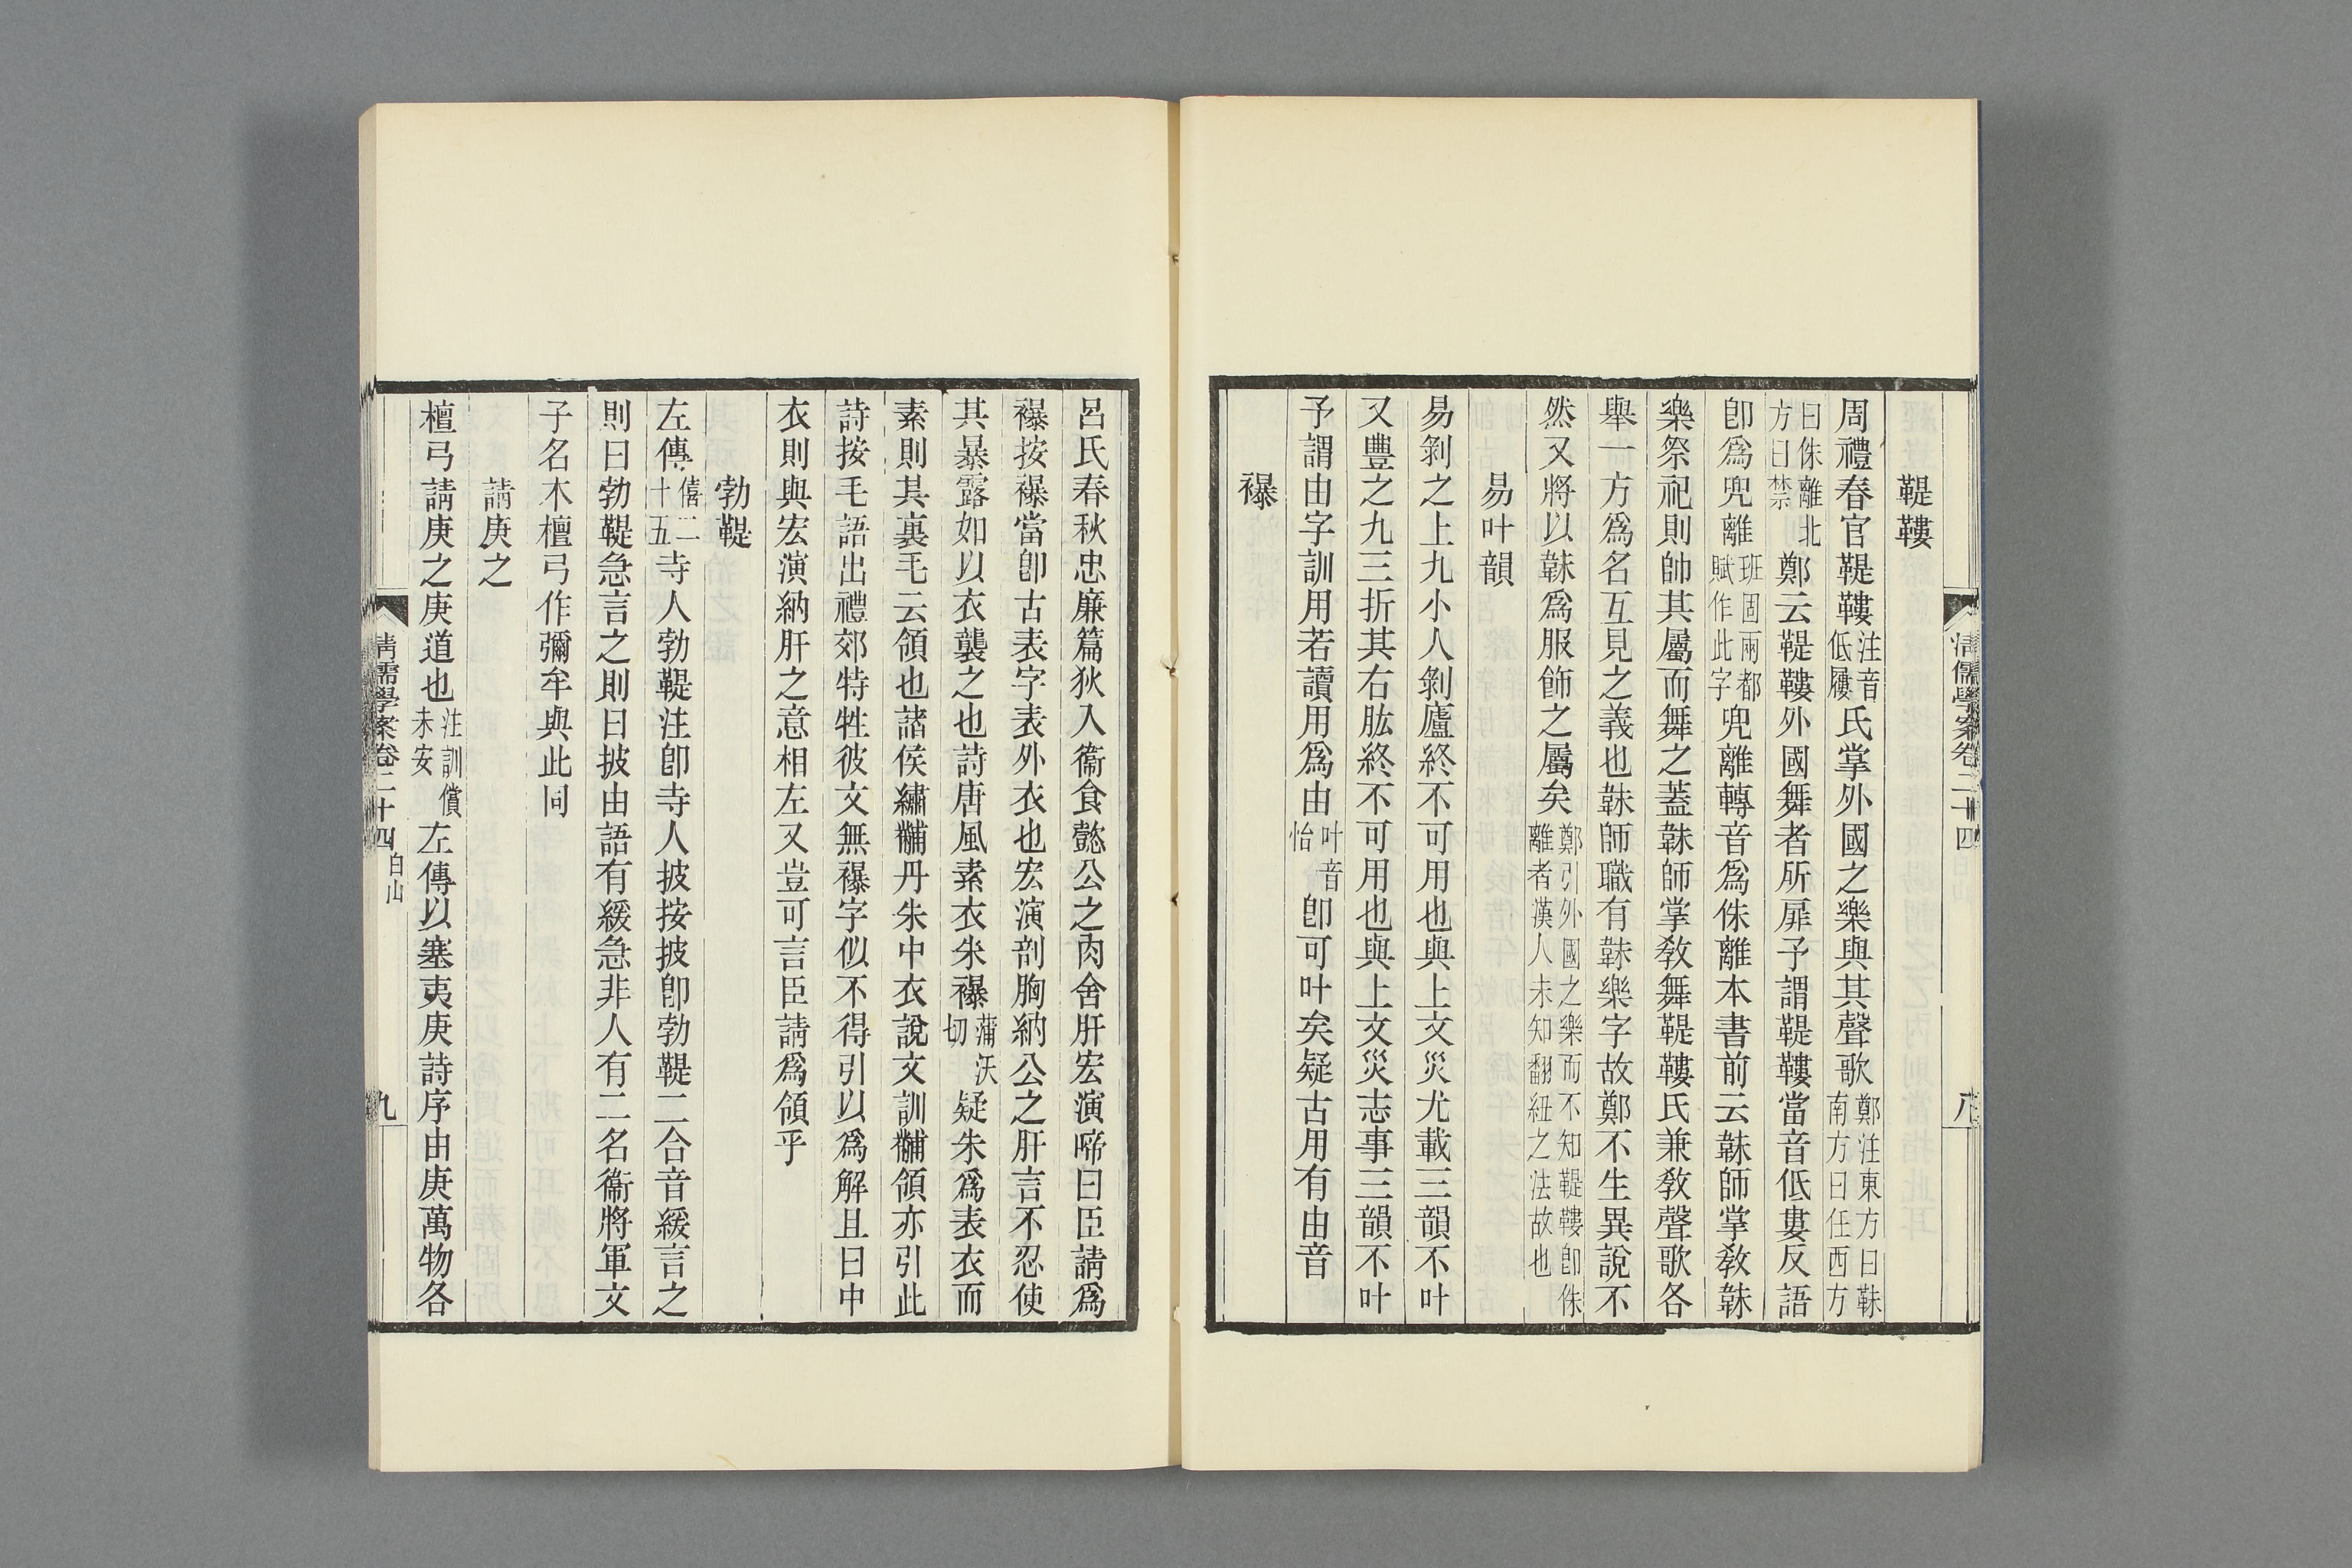 清儒學案卷二十四
八
鞮鞻
周禮春官鞮鞻注音低屨氏掌外國之樂與其聲歌鄭注東方曰韎南方曰任西方
曰侏離北方曰禁鄭云鞮鞻外國舞者所扉予謂鞮鞻當音低婁反語
卽爲兜離班固兩都賦作此字兜離轉音爲侏離本書前云韎師掌敎韎
樂祭祀則帥其屬而舞之蓋韎師掌敎舞鞮鞻氏兼敎聲歌各
舉一方爲名互見之義也韎師職有韎樂字故鄭不生異說不
然又將以韎爲服飾之屬矣鄭引外國之樂而不知鞮鞻卽侏離者漢人未知翻紐之法故也
易叶韻
易剝之上九小人剝廬終不可用也與上文災尤載三韻不叶
又豐之九三折其右肱終不可用也與上文災志事三韻不叶
予謂由字訓用若讀用爲由叶音怡卽可叶矣疑古用有由音
襮
呂氏春秋忠廉篇狄入衞食懿公之肉舍肝宏演啼曰臣請爲
襮按襮當卽古表字表外衣也宏演剖胸納公之肝言不忍使
其暴露如以衣襲之也詩唐風素衣朱襮蒲沃切疑朱爲表衣而
素則其裏毛云領也諸侯繡黼丹朱中衣說文訓黼領亦引此
詩按毛語出禮郊特牲彼文無襮字似不得引以爲解且曰中
衣則與宏演納肝之意相左又豈可言臣請爲領乎
勃鞮
左傳僖二十五寺人勃鞮注卽寺人披按披卽勃鞮二合音緩言之
則曰勃鞮急言之則曰披由語有緩急非人有二名衞將軍文
子名木檀弓作彌牟與此同
請庚之
檀弓請庚之庚道也注訓償未安左傳以塞夷庚詩序由庚萬物各
清儒學案卷二十四 白山
九